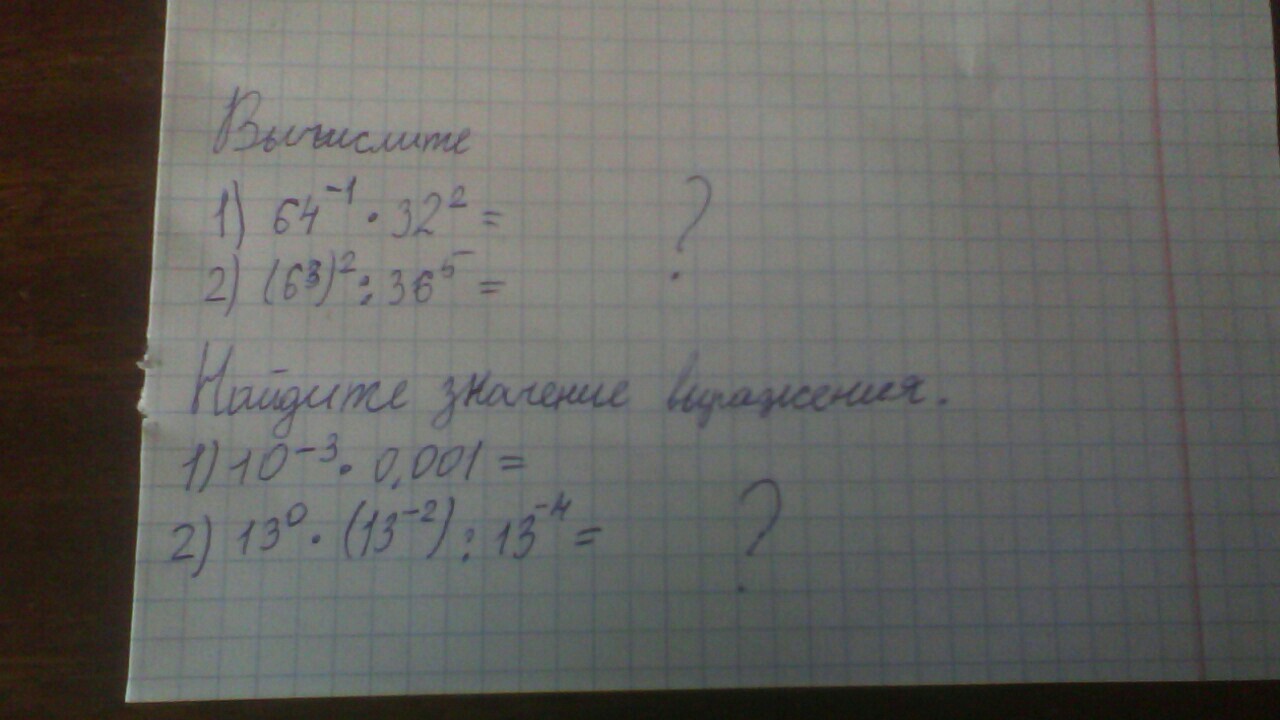 Вычислите
1) 64⁻¹ · 32² = ?
2) (63)² : 36⁵ =
Найдите значение выражения.
1) 10⁻³ · 0,001 =
2) 13⁰ · (13⁻²) : 13⁻⁴ = ?